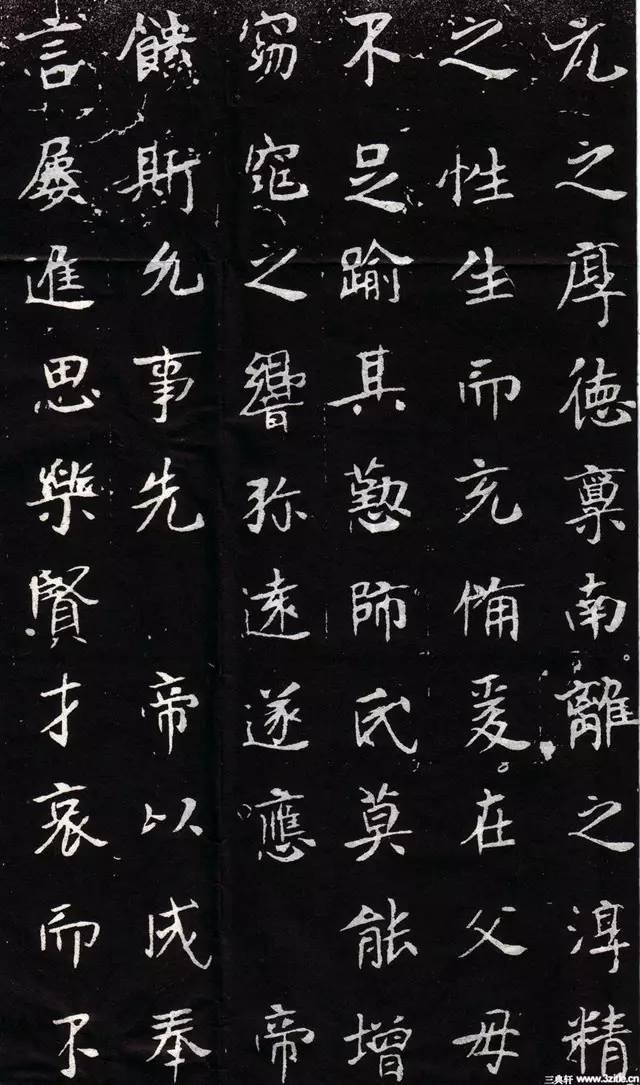 元之厚德禀南離之淳精
之性生而充備爰在父母
不足踰其懃師氏莫能增
窈窕之響弥遠遂應 帝
饋斯允事先 帝以成奉
言屡進思樂賢才哀而不
三典轩 www.3zitie.cn